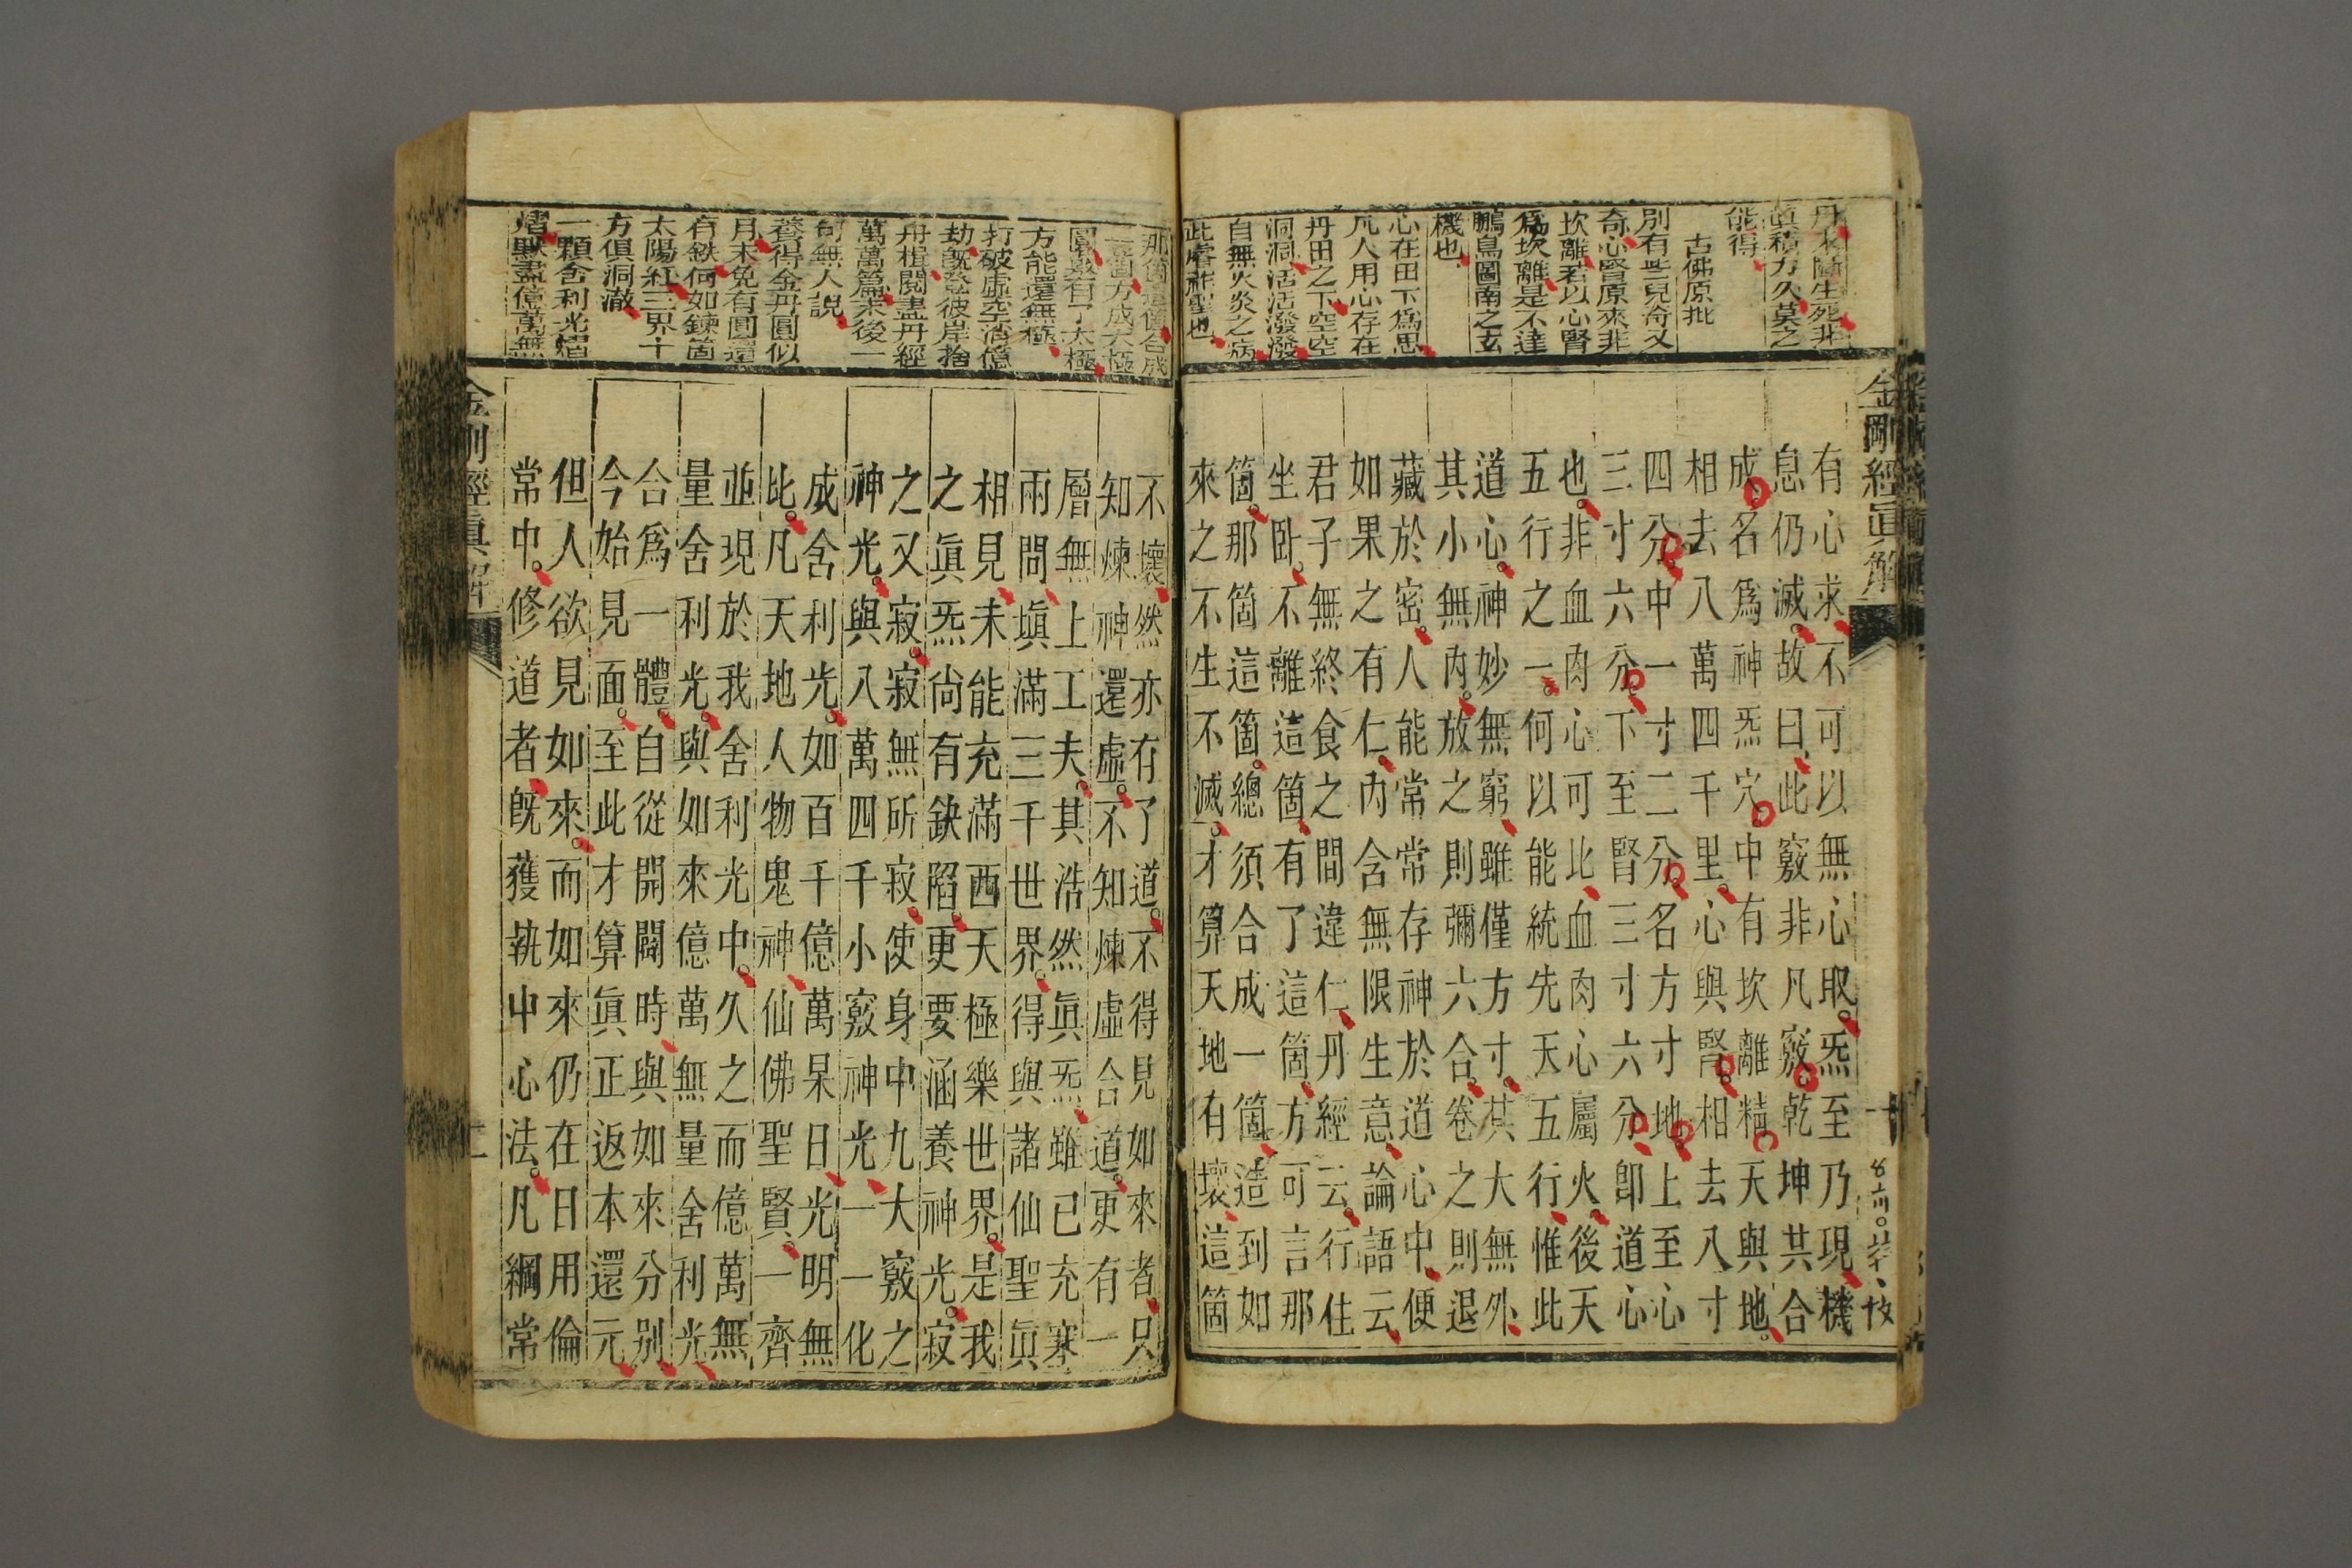 金剛經眞解
眞積力久莫之
能得
古佛原批
別有些兒奇又
奇心腎原來非
坎離若以心腎
爲坎離是不達
鵬鳥圖南之玄
機也
心在田下爲思
凡人用心存在
丹田之下空空
洞洞活活潑潑
自無火炎之病
此睿作聖也
有心求不可以無心取。炁至乃現機
息仍滅。故曰此竅非凡竅乾坤共合
成名爲神炁穴中有坎離精天與地。
相去八萬四千里。心與腎相去八寸
四分中一寸二分。名方寸地上至心
三寸六分下至腎三寸六分卽道心
也。非血肉心可比血肉心屬火後天
五行之一。何以能統先天五行惟此
道心。神妙無窮雖僅方寸。其大無外
其小無內。放之則彌六合。卷之則退
藏於密。人能常常存神於道心中便
如果之有仁。內含無限生意論語云
君子無終食之間違仁丹經云行住
坐臥。不離這箇有了這箇方可言那
箇。那箇這箇。總須合成一箇造到如
來之不生不滅。才算天地有壞這箇
那箇這箇合成
一箇方成太極
圈縱有了太極
方能還無極
打破虛空消億
劫旣登彼岸捨
舟楫閱盡丹經
萬萬篇末後一
句無人說
養得金丹圓似
月未免有圓還
有缺何如鍊箇
太陽紅三界十
方俱洞澈
一顆舍利光熠
熠默盡億萬無
不壞然亦存了道。不得見如來者。只
知煉神還虛。不知煉虛合道。更有一
層無上工夫。其浩然眞炁雖已充塞
兩間塡滿三千世界。得與諸仙聖眞
相見未能充滿西天極樂世界。是我
之眞炁尙有缺陷。更要涵養神光。寂
之又寂。寂無所寂。使身中九大竅之
神光。與八萬四千小竅神光一一化
成舍利光。如百千億萬杲日光明無
比。凡天地人物鬼神仙佛聖賢。一齊
並現於我舍利光中。久之而億萬無
量舍利光與如來億萬無量舍利光
合爲一體。自從開闢時與如來分別
今始見面。至此才算眞正返本還元
但人欲見如來。而如來仍在日用倫
常中。修道者旣獲執中心法。凡綱常
金剛經眞解